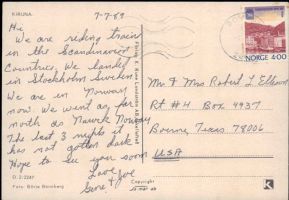 KIRUNA
7-7-89
Hi
We are riding trains
in the Scandinavian
Countries. We landed
in Stockholm Sweden
We are in Norway
now. We went as far
north as Narvik Norway
The last 3 nights it
has not gotten dark.
Hope to see you soon
Love
Gene & Joe
D. 2/2249
Foto: Börje Rönnberg
Copyright
NORGE 4.00
Mr & Mrs Robert L Ellison
Rt #4 Box 4937
Boerne, Texas 78006
USA